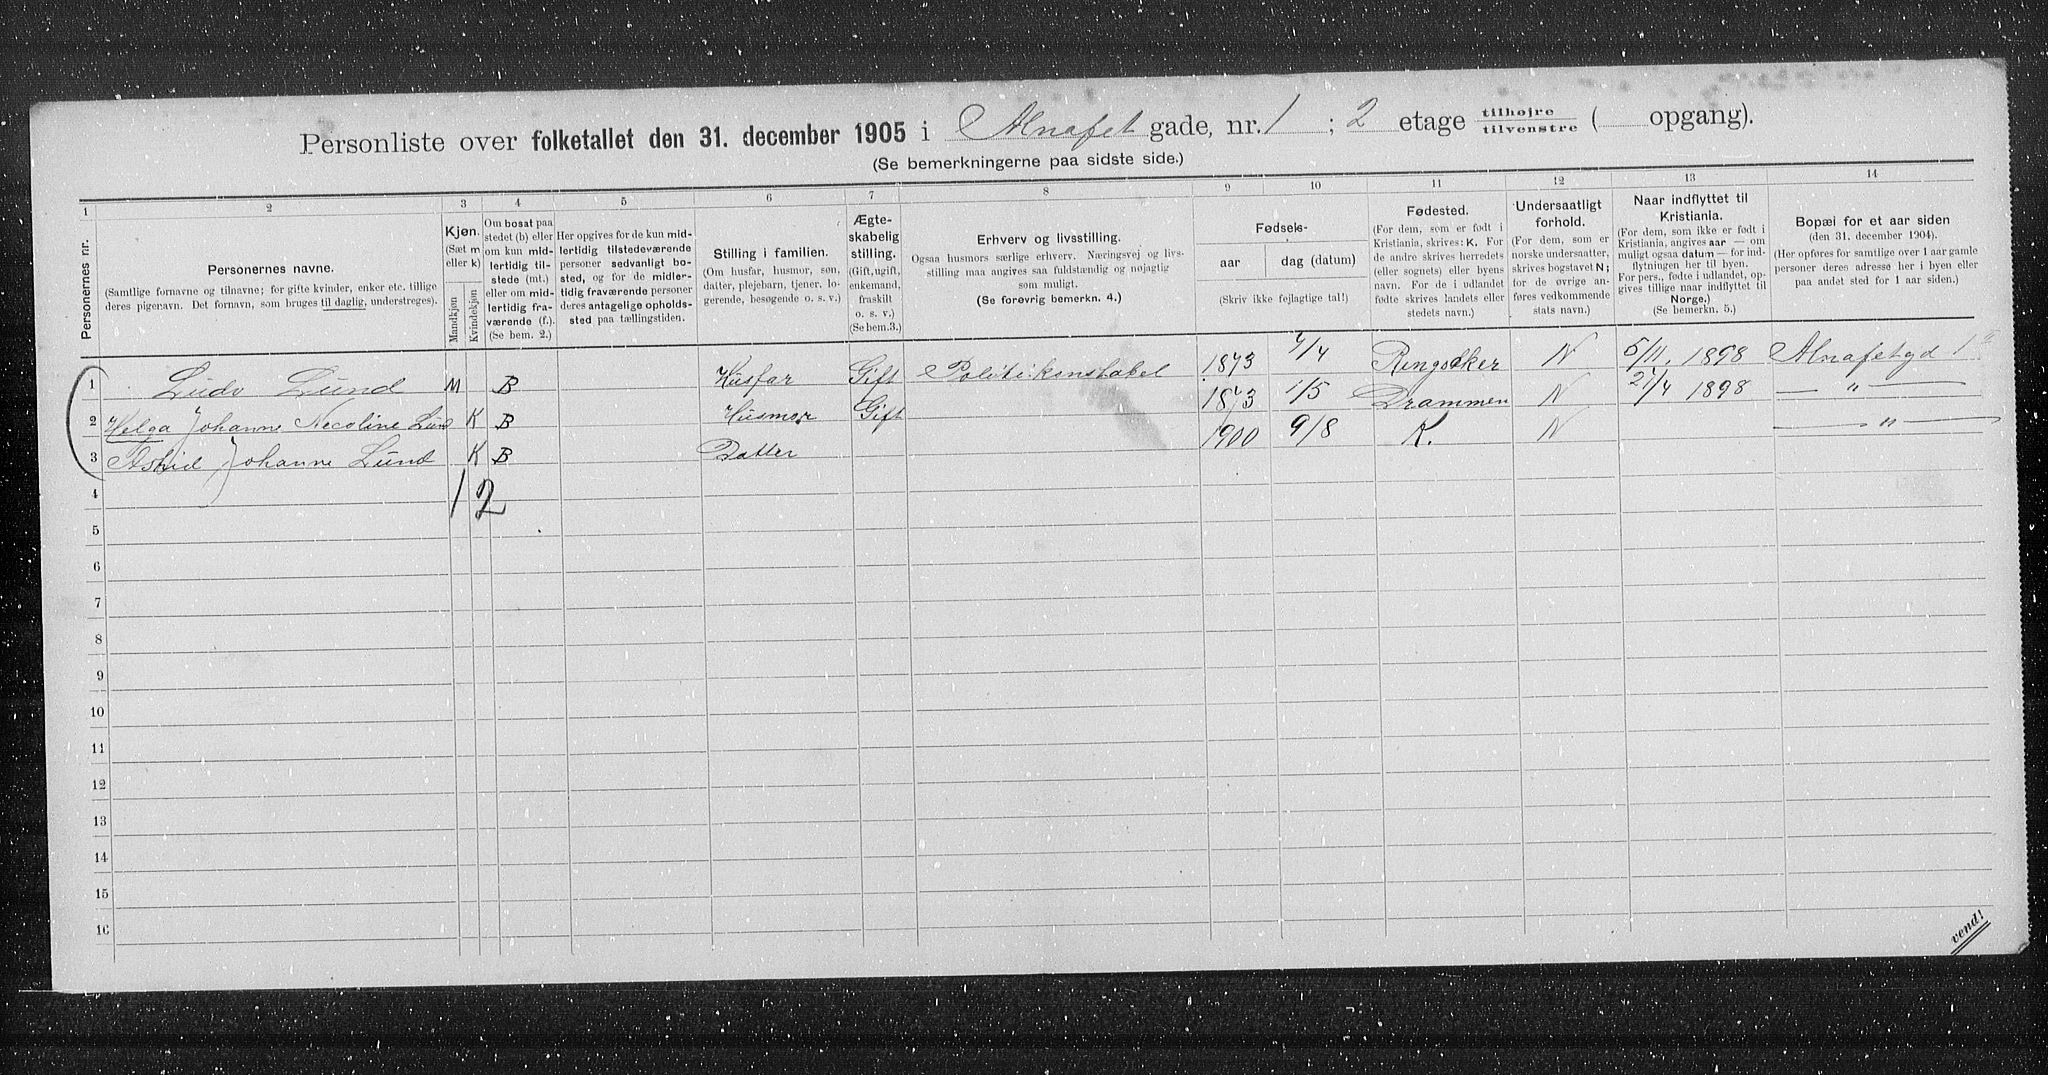 Personliste over folketallet den 31. december 1905 i Alnafet gade, nr. 1 ; 2 etage tilhøjre tilvenstre ( opgang).
(Se bemerkningerne paa sidste side.)
1 2 3 4 5 6 7 8 9 10 11 12 13 14
Personernes nr.
Personernes navne.
(Samtlige fornavne og tilnavne; for gifte kvinder, enker etc. tillige
deres pigenavn. Det fornavn, som bruges til daglig, understreges).
Kjøn.
(Sæt m
eller k)
Mandkjøn
Kvindekjøn
Om bosat paa
stedet (b) eller
om kun mid-
lertidig til-
stede (mt.)
eller om mid-
lertidig fra-
værende (f.).
(Se bem. 2.)
Her opgives for de kun mid-
lertidig tilstedeværende
personer sedvanlig bo-
sted, og for de midler-
tidig fraværende personer
deres antagelige opholds-
sted paa tællingstiden.
Stilling i familien.
(Om husfar, husmor, søn,
datter, plejebarn, tjener, lo-
gerende, besøgende o. s. v.)
Ægte-
skabelig
stilling.
(Gift, ugift,
enkemand,
fraskilt
o. s. v.)
(Se bem.3.)
Erhverv og livsstilling.
Ogsaa husmors særlige erhverv. Næringsvej og livs-
stilling maa angives saa fuldstændig og nøjagtig
som muligt.
(Se forøvrig bemerkn. 4.)
Fødsels-
aar dag (datum)
(Skriv ikke fejlagtige tal!)
Fødested.
(For dem, som er født i
Kristiania, skrives: K. For
de andre skrives herredets
(eller sognets) eller byens
navn. For de i udlandet
fødte skrives landets eller
stedets navn.)
Undersaatligt
forhold.
(For dem, som er
norske undersaatter,
skrives bogstavet N;
for de øvrige an-
føres vedkommende
stats navn.)
Naar indflyttet til
Kristiania.
(For dem, som ikke er født i
Kristiania, angives aar — om
muligt ogsaa datum — for ind-
flytningen her til byen. For
pers., fødte i udlandet, op-
gives tillige naar indflyttet til
Norge.)
(Se bemerkn. 5.)
Bopæl for et aar siden
(den 31. december 1904).
(Her opføres for samtlige over 1 aar gamle
personer deres adresse her i byen eller
paa andet sted for 1 aar siden.)
1 Ludv Lund M B Husfar Gift Politikonstabel 1873 7/4 Ringsaker N 5/11 1898 Alnafetgd 1
2 Helga Johanne Necoline Lund K B Husmor Gift 1873 1/5 Drammen N 1898 — " —
3 Astrid Johanne Lund K B Datter 1900 9/8 K. N — " —
4 1 2
5
6
7
8
9
10
11
12
13
14
15
16
vend!